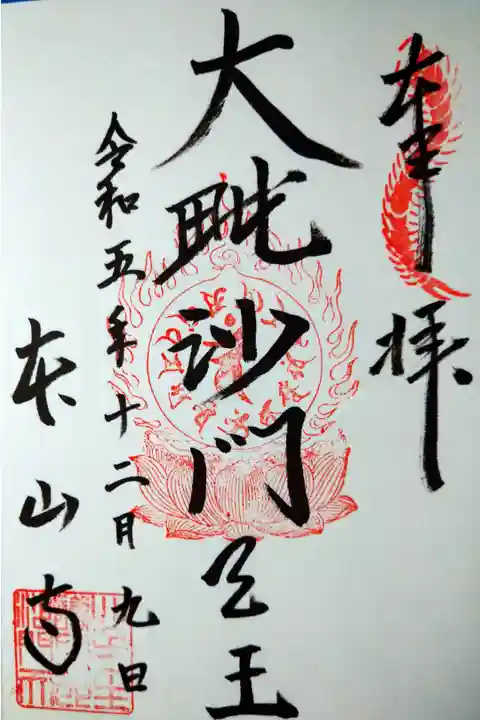 奉拝
大毗沙門天王
令和五年十二月九日
本山寺